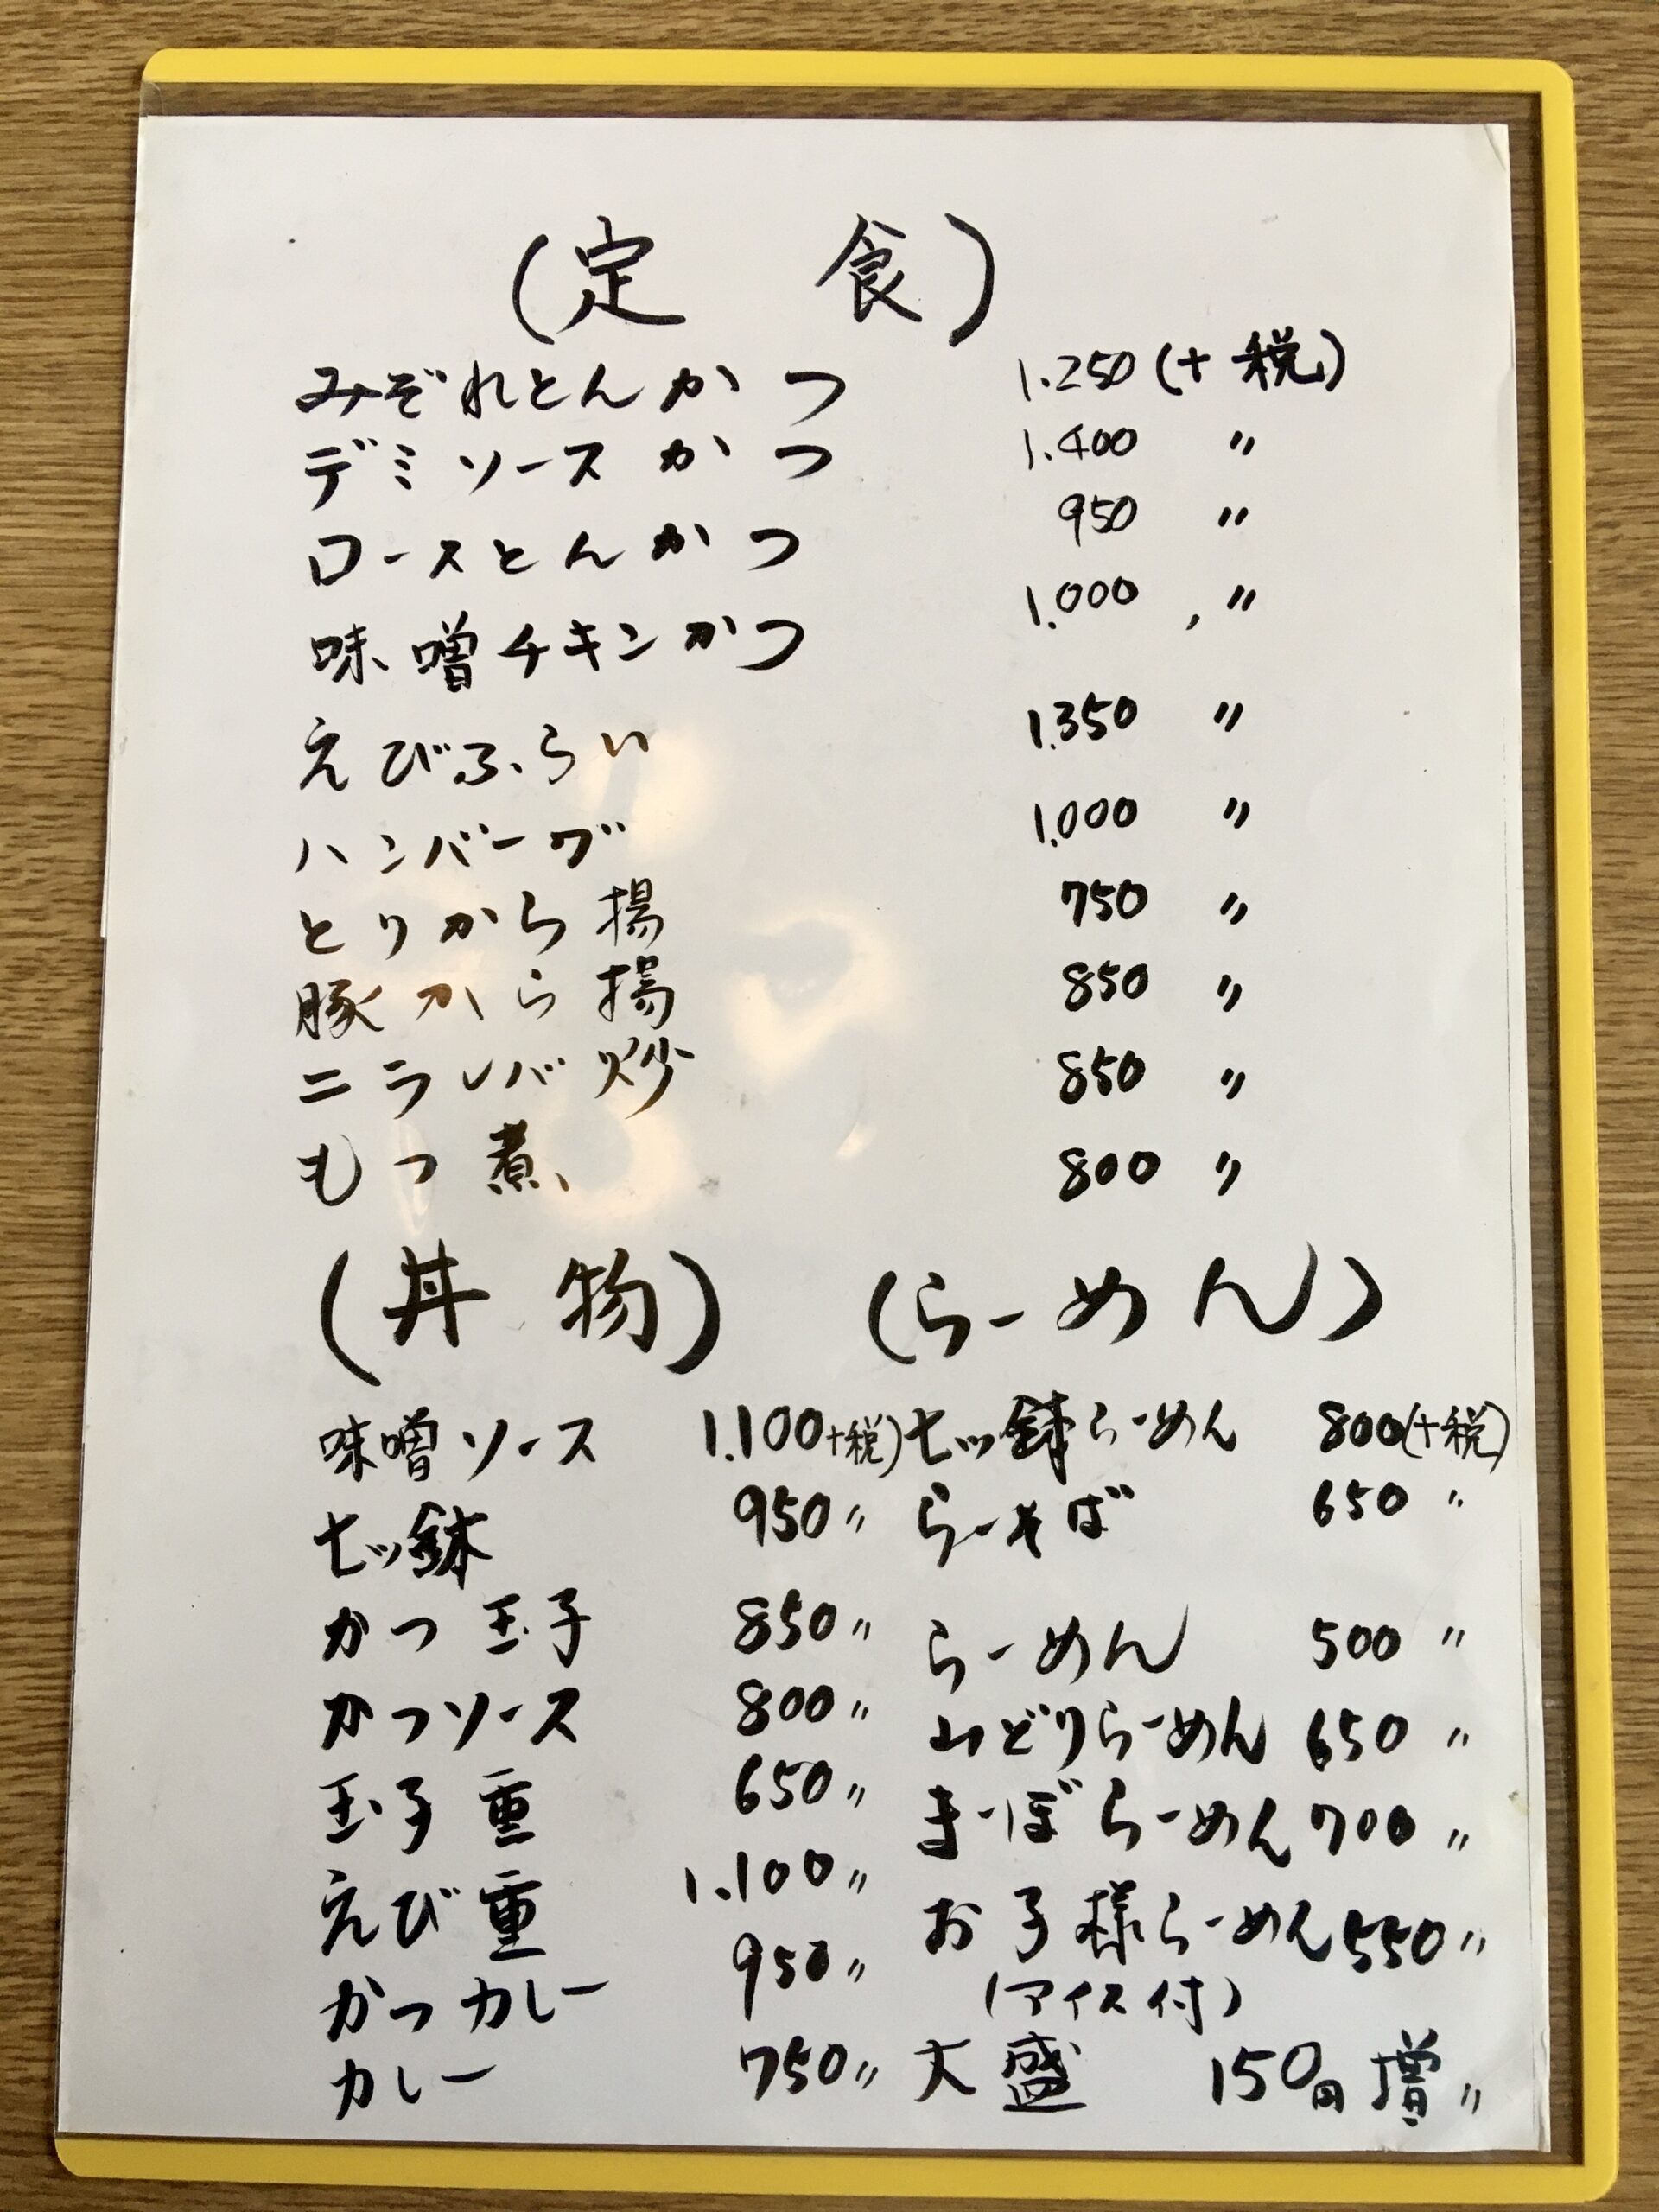 (定 食)
みぞれとんかつ 1.250(+税)
デミソースかつ 1.400 〃
ロースとんかつ 950 〃
味噌チキンかつ 1.000 〃
えびふらい 1.350 〃
ハンバーグ 1.000 〃
とりから揚 750 〃
豚から揚 850 〃
ニラレバ炒 850 〃
もつ煮 800 〃
(丼物)
味噌ソース 1.100+税)
七ッ鉢 950〃
かつ玉子 850〃
かつソース 800〃
玉子重 650〃
えび重 1.100〃
かつカレー 950〃
カレー 750〃
(らーめん)
七ッ鉢らーめん 800(+税)
らーそば 650 〃
らーめん 500 〃
山どりらーめん 650 〃
まーぼらーめん 700 〃
お子様らーめん 550〃
(アイス付)
大盛 150円増〃